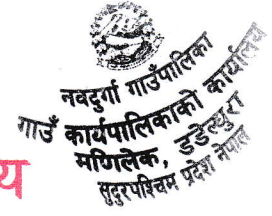 नवदुर्गा गाउँपालिका
गाउँ कार्यपालिकाको कार्यालय
मणिलेक, डडेल्धुरा
सुदुरपश्चिम प्रदेश नेपाल
य